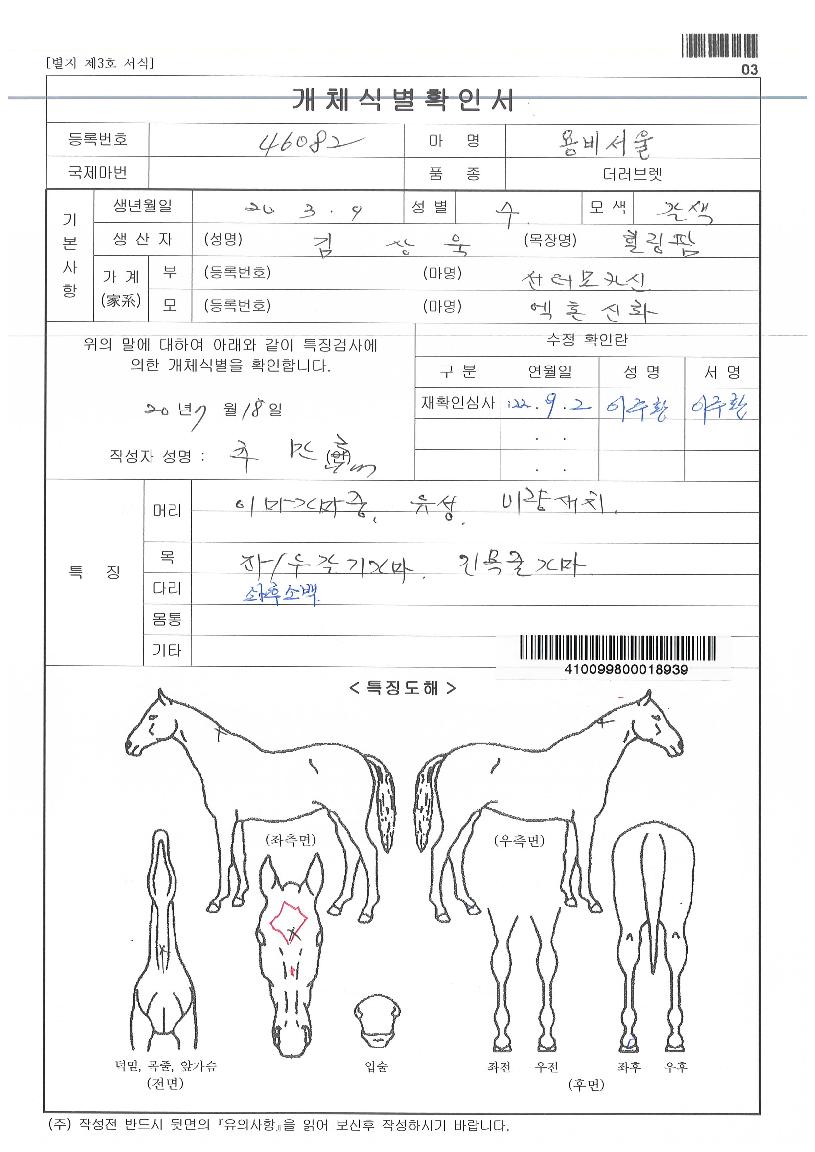 [별지 제3호 서식]
03
개체식별확인서
등록번호 46082 마 명 용비서울
국제마번 품 종 더러브렛
기본사항
생년월일 20 3 . 9 성별 수 모색 갈색
생산자 (성명) 김 상 욱 (목장명) 힐링팜
가계 (家系) 부 (등록번호) (마명)
모 (등록번호) (마명) 엑톤신화
위의 말에 대하여 아래와 같이 특징검사에
의한 개체식별을 확인합니다.
20 년 7 월 18 일
작성자 성명 : 추
수정 확인란
구 분 연월일 성 명 서 명
재확인심사 '22. 9. 2 이주환 이주환
. .
. .
특 징
머리 이마가마중, 유성, 비량세치.
목 좌/우 목기가마. 인목줄가마
다리 좌후소백
몸통
기타
410099800018939
< 특징도해 >
(좌측면) (우측면)
턱밑, 목줄, 앞가슴
(전면)
입술
좌전 우전 좌후 우후
(후면)
(주) 작성전 반드시 뒷면의 『유의사항』을 읽어 보신후 작성하시기 바랍니다.